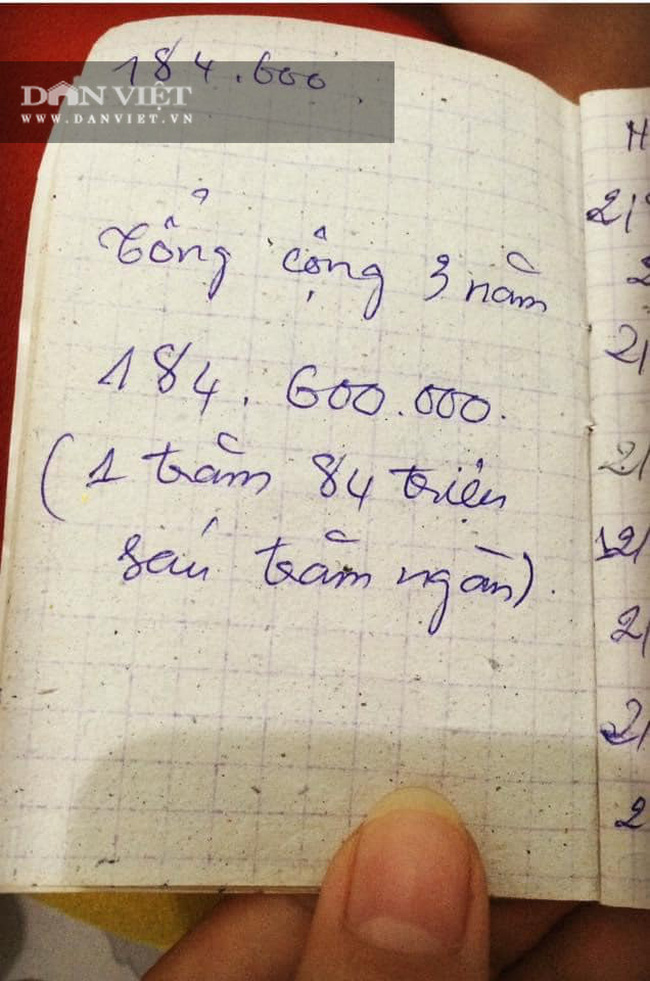 184.600
DÂN VIỆT
WWW.DANVIET.VN
Tổng cộng 3 năm
184.600.000.
(1 trăm 84 triệu
sáu trăm ngàn).
H
21
2
21
21
12/
21
21
2